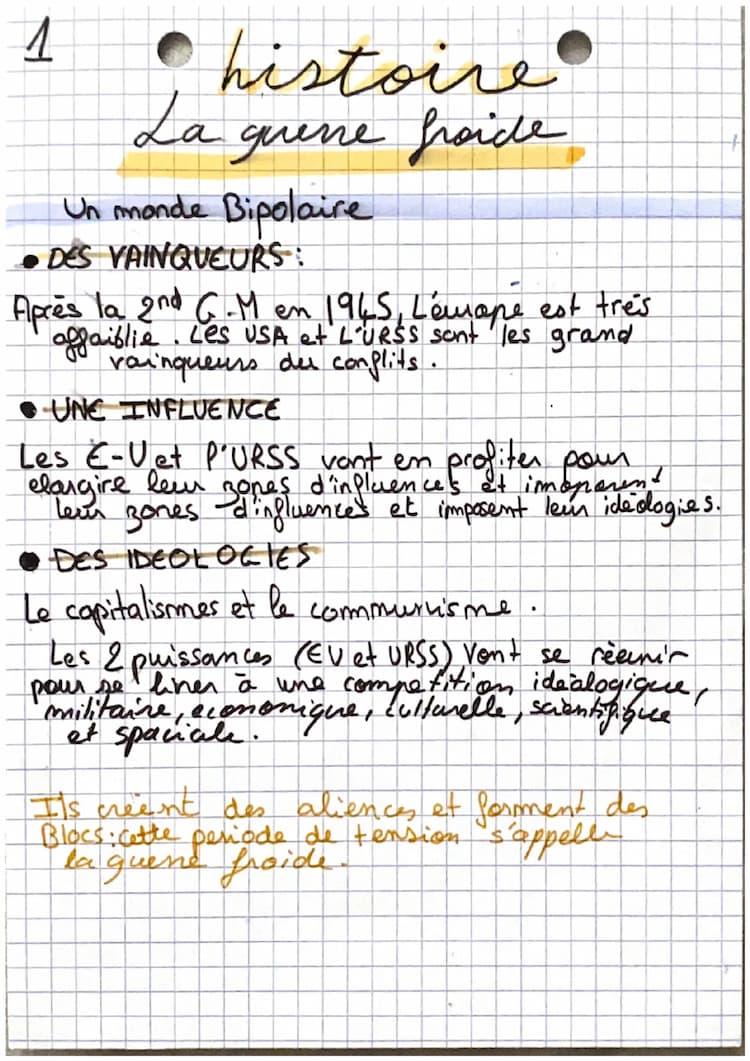 1
histoire
La guerre froide
Un monde Bipolaire
• DES VAINQUEURS :
Après la 2nd G.M en 1945, L'europe est très
affaiblie. Les USA et L'URSS sont les grand
vainqueurs du conflits.
• UNE INFLUENCE
Les E-U et l'URSS vont en profiter pour
elargire leur zones d'influences et imposent
leur zones d'influences et imposent leur idéologies.
• DES IDEOLOGIES
Le capitalismes et le communisme.
Les 2 puissances (EU et URSS) Vont se réunir
pour se livrer à une competition idéalogique,
militaire, economique, culturelle, scientifique
et spaciale.
Ils créent des aliences et forment des
Blocs : cette periode de tension s'appelle
la guerre froide.